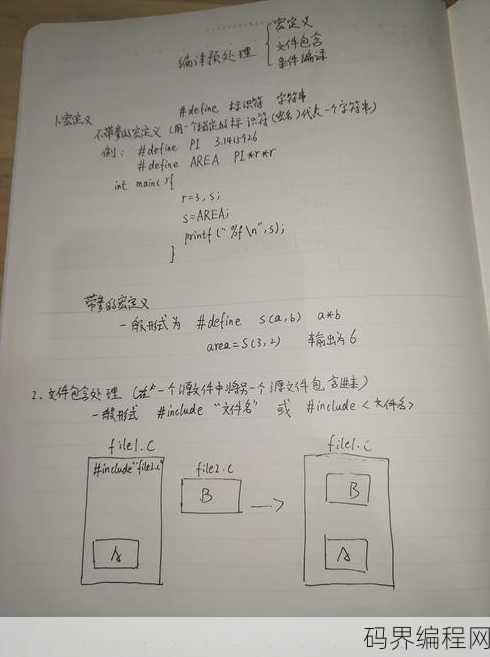 编译预处理 { 宏定义
文件包含
条件编译
1.宏定义
#define 标识符 字符串
不带参的宏定义 (用一个指定的标识符(宏名)代表一个字符串)
例: #define PI 3.1415926
#define AREA PI*r*r
int main( ){
r=3, s;
s=AREA;
printf("%f\n",s);
}
带参的宏定义
一般形式为 #define S(a,b) a*b
area=S(3,2) 输出为6
2.文件包含处理 (在一个源文件中将另一个源文件包含进来)
一般形式 #include "文件名" 或 #include <文件名>
file1.c file2.c file1.c
#include"file2.c"
B B
A A
码界编程网